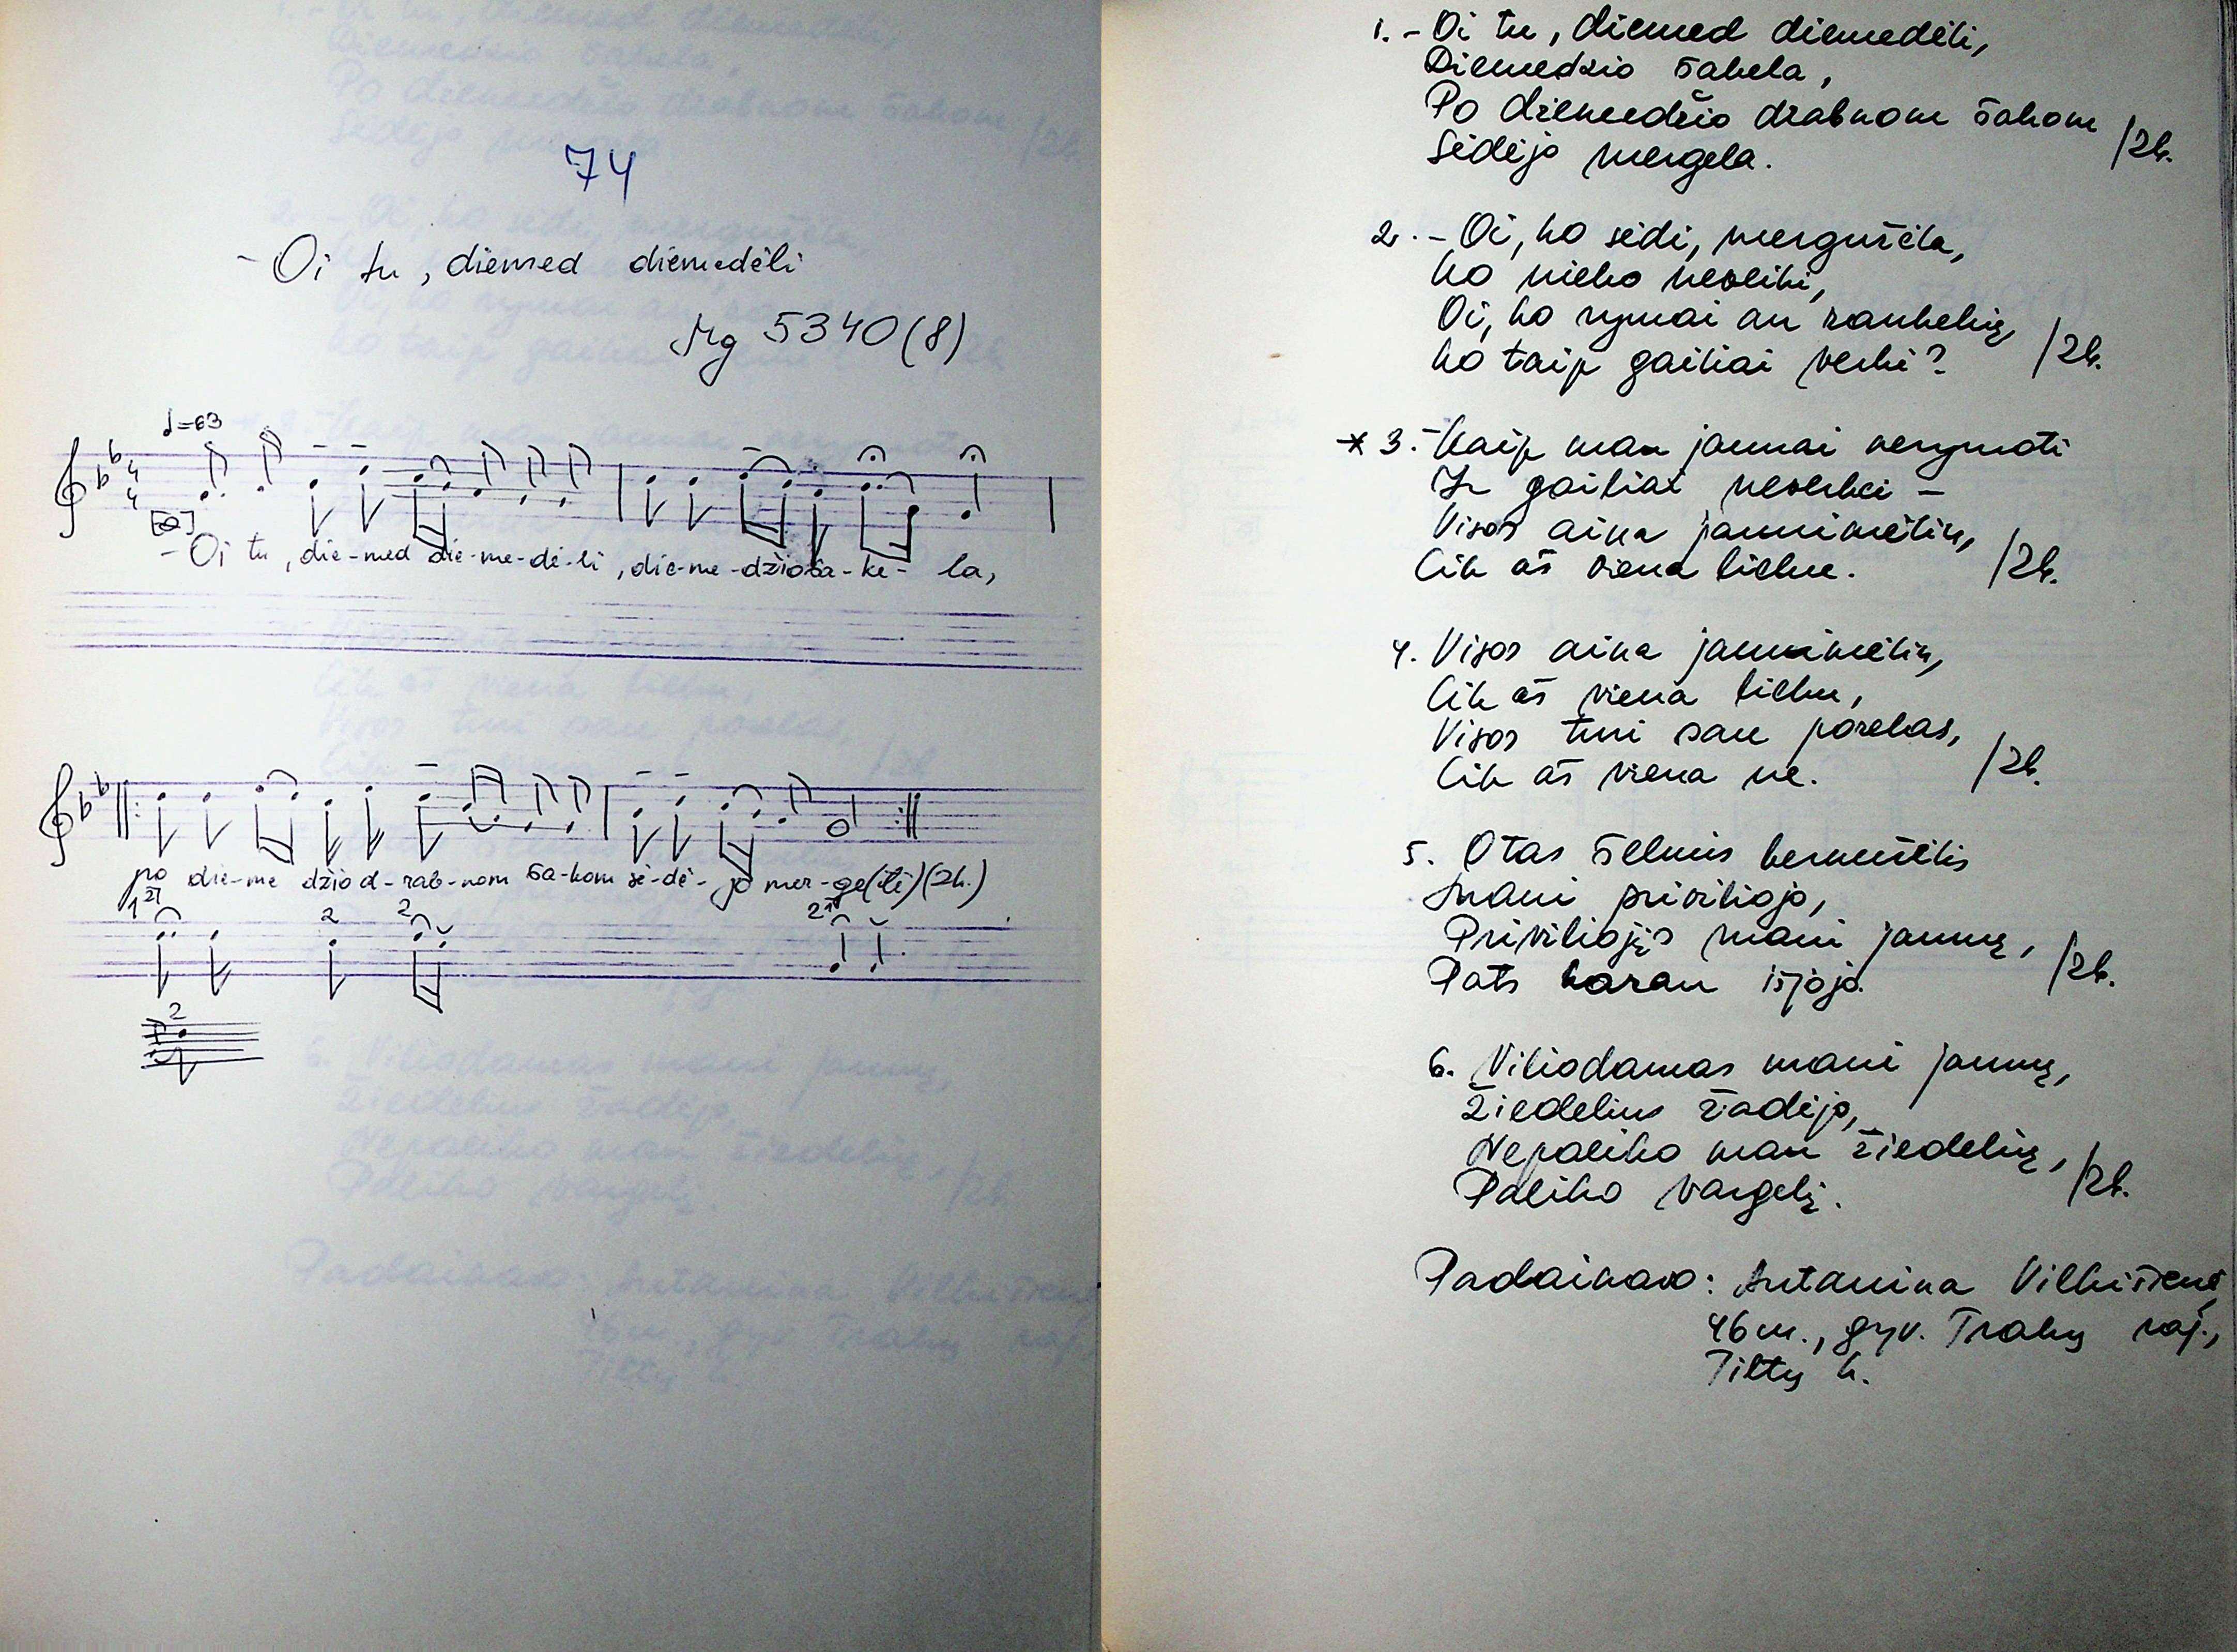 74
- Oi tu, diemed diemedėli
Mg 5340(8)
♩=63
- Oi tu, die-med die-me-dė-li, die-me-džio ša-ke- la,
po die-me džio d-rab-nom ša-kom sė-dė- jo mer-ge(lė)(2k.)
1. - Oi tu, diemed diemedėli,
Diemedžio šakela,
Po diemedžio drabnom šakom /2k.
Sėdėjo mergela.
2. - Oi, ko sėdi, mergužėla,
Ko nieko neveiki,
Oi, ko rymai an rankelių, /2k.
Ko taip gailiai verki?
* 3. - Kaip man jaunai nerymoti
Ir gailiai neverkci -
Visos aina jaunimėlin, /2k.
Cik aš viena liekue.
4. Visos aina jaunimėlin,
Cik aš viena liekue,
Visos turi sau porelas, /2k.
Cik aš viena ne.
5. O tas šelmis bernužėlis
Mani priviliojo,
Priviliojįs mani jauną, /2k.
Pats karan išjojo.
6. Viliodamas mani jauną,
Žiedelius žadėjo,
Nepaliko man žiedelių, /2k.
Paliko vargelį.
Padainavo: Antanina Vilkišienė,
46 m., gyv. Trakų raj.,
Tiltų k.